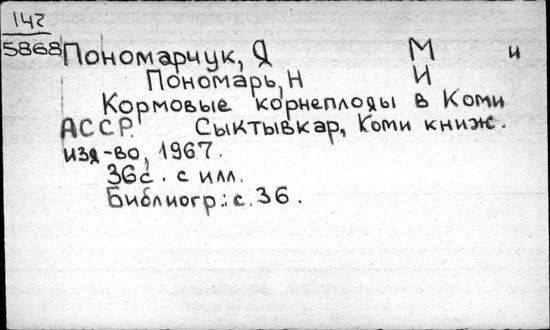 142
5868 Пономарчук, Я М и
Пономарь, Н И
Кормовые корнеплоды в Коми
АССР. Сыктывкар, Коми книж.
изд-во, 1967.
36с. с илл.
Библиогр.: с. 36.